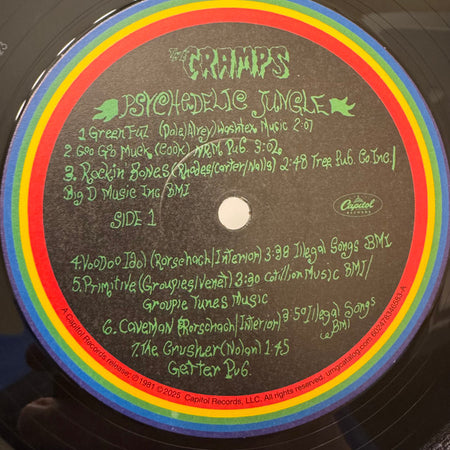 The CRAMPS
PSYCHEDELIC JUNGLE
1. Green Fuz (Dale/Alrey) Washtex Music 2:07
2. Goo Goo Muck (Cook) NRM Pub. 3:02
3. Rockin Bones (Rhodes/Carter/Nalls) 2:48 Tree Pub. Co Inc./
Big D Music Inc BMI
SIDE 1
Capitol
RECORDS
4. VooDoo Idol (Rorschach/Interior) 3:38 Illegal Songs BMI
5. Primitive (Groupies/Venet) 3:30 Cotillion Music BMI/
Groupie Tunes Music
6. Caveman (Rorschach/Interior) 3:50 Illegal Songs
BMI
7. The Crusher (Nolan) 1:45
Getter Pub.
A Capitol Records release; ℗ 1981 © 2025 Capitol Records, LLC. All rights reserved. umgcatalog.com